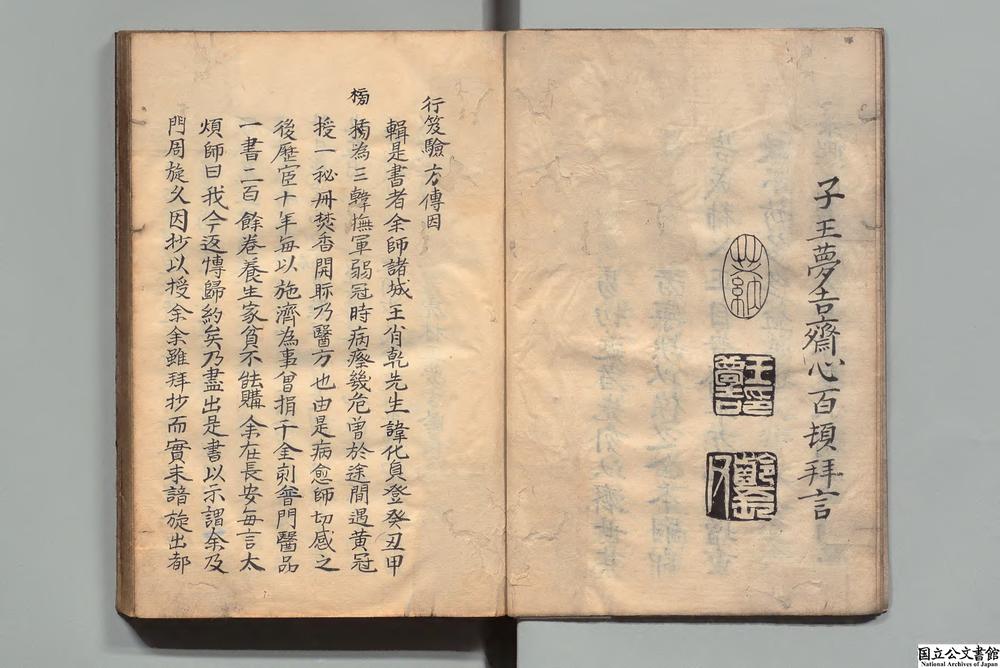 子王夢吉齋心百頓拜言
行笈驗方傳因
輯是書者余師諸城王肖乾先生諱化貞登癸丑甲
榜
㨍為三韓撫軍弱冠時病瘵幾危曽於途間遇黄冠
授一秘冊焚香開眎乃醫方也由是病愈師切感之
後歷宦十年每以施濟為事曾捐千金刻普門醫品
一書二百餘卷養生家貧不能購余在長安每言太
煩師曰我今返博歸約矣乃盡出是書以示謂余及
門周旋久因抄以授余余雖拜抄而實未諳旋出都
王夢吉印
国立公文書館
National Archives of Japan